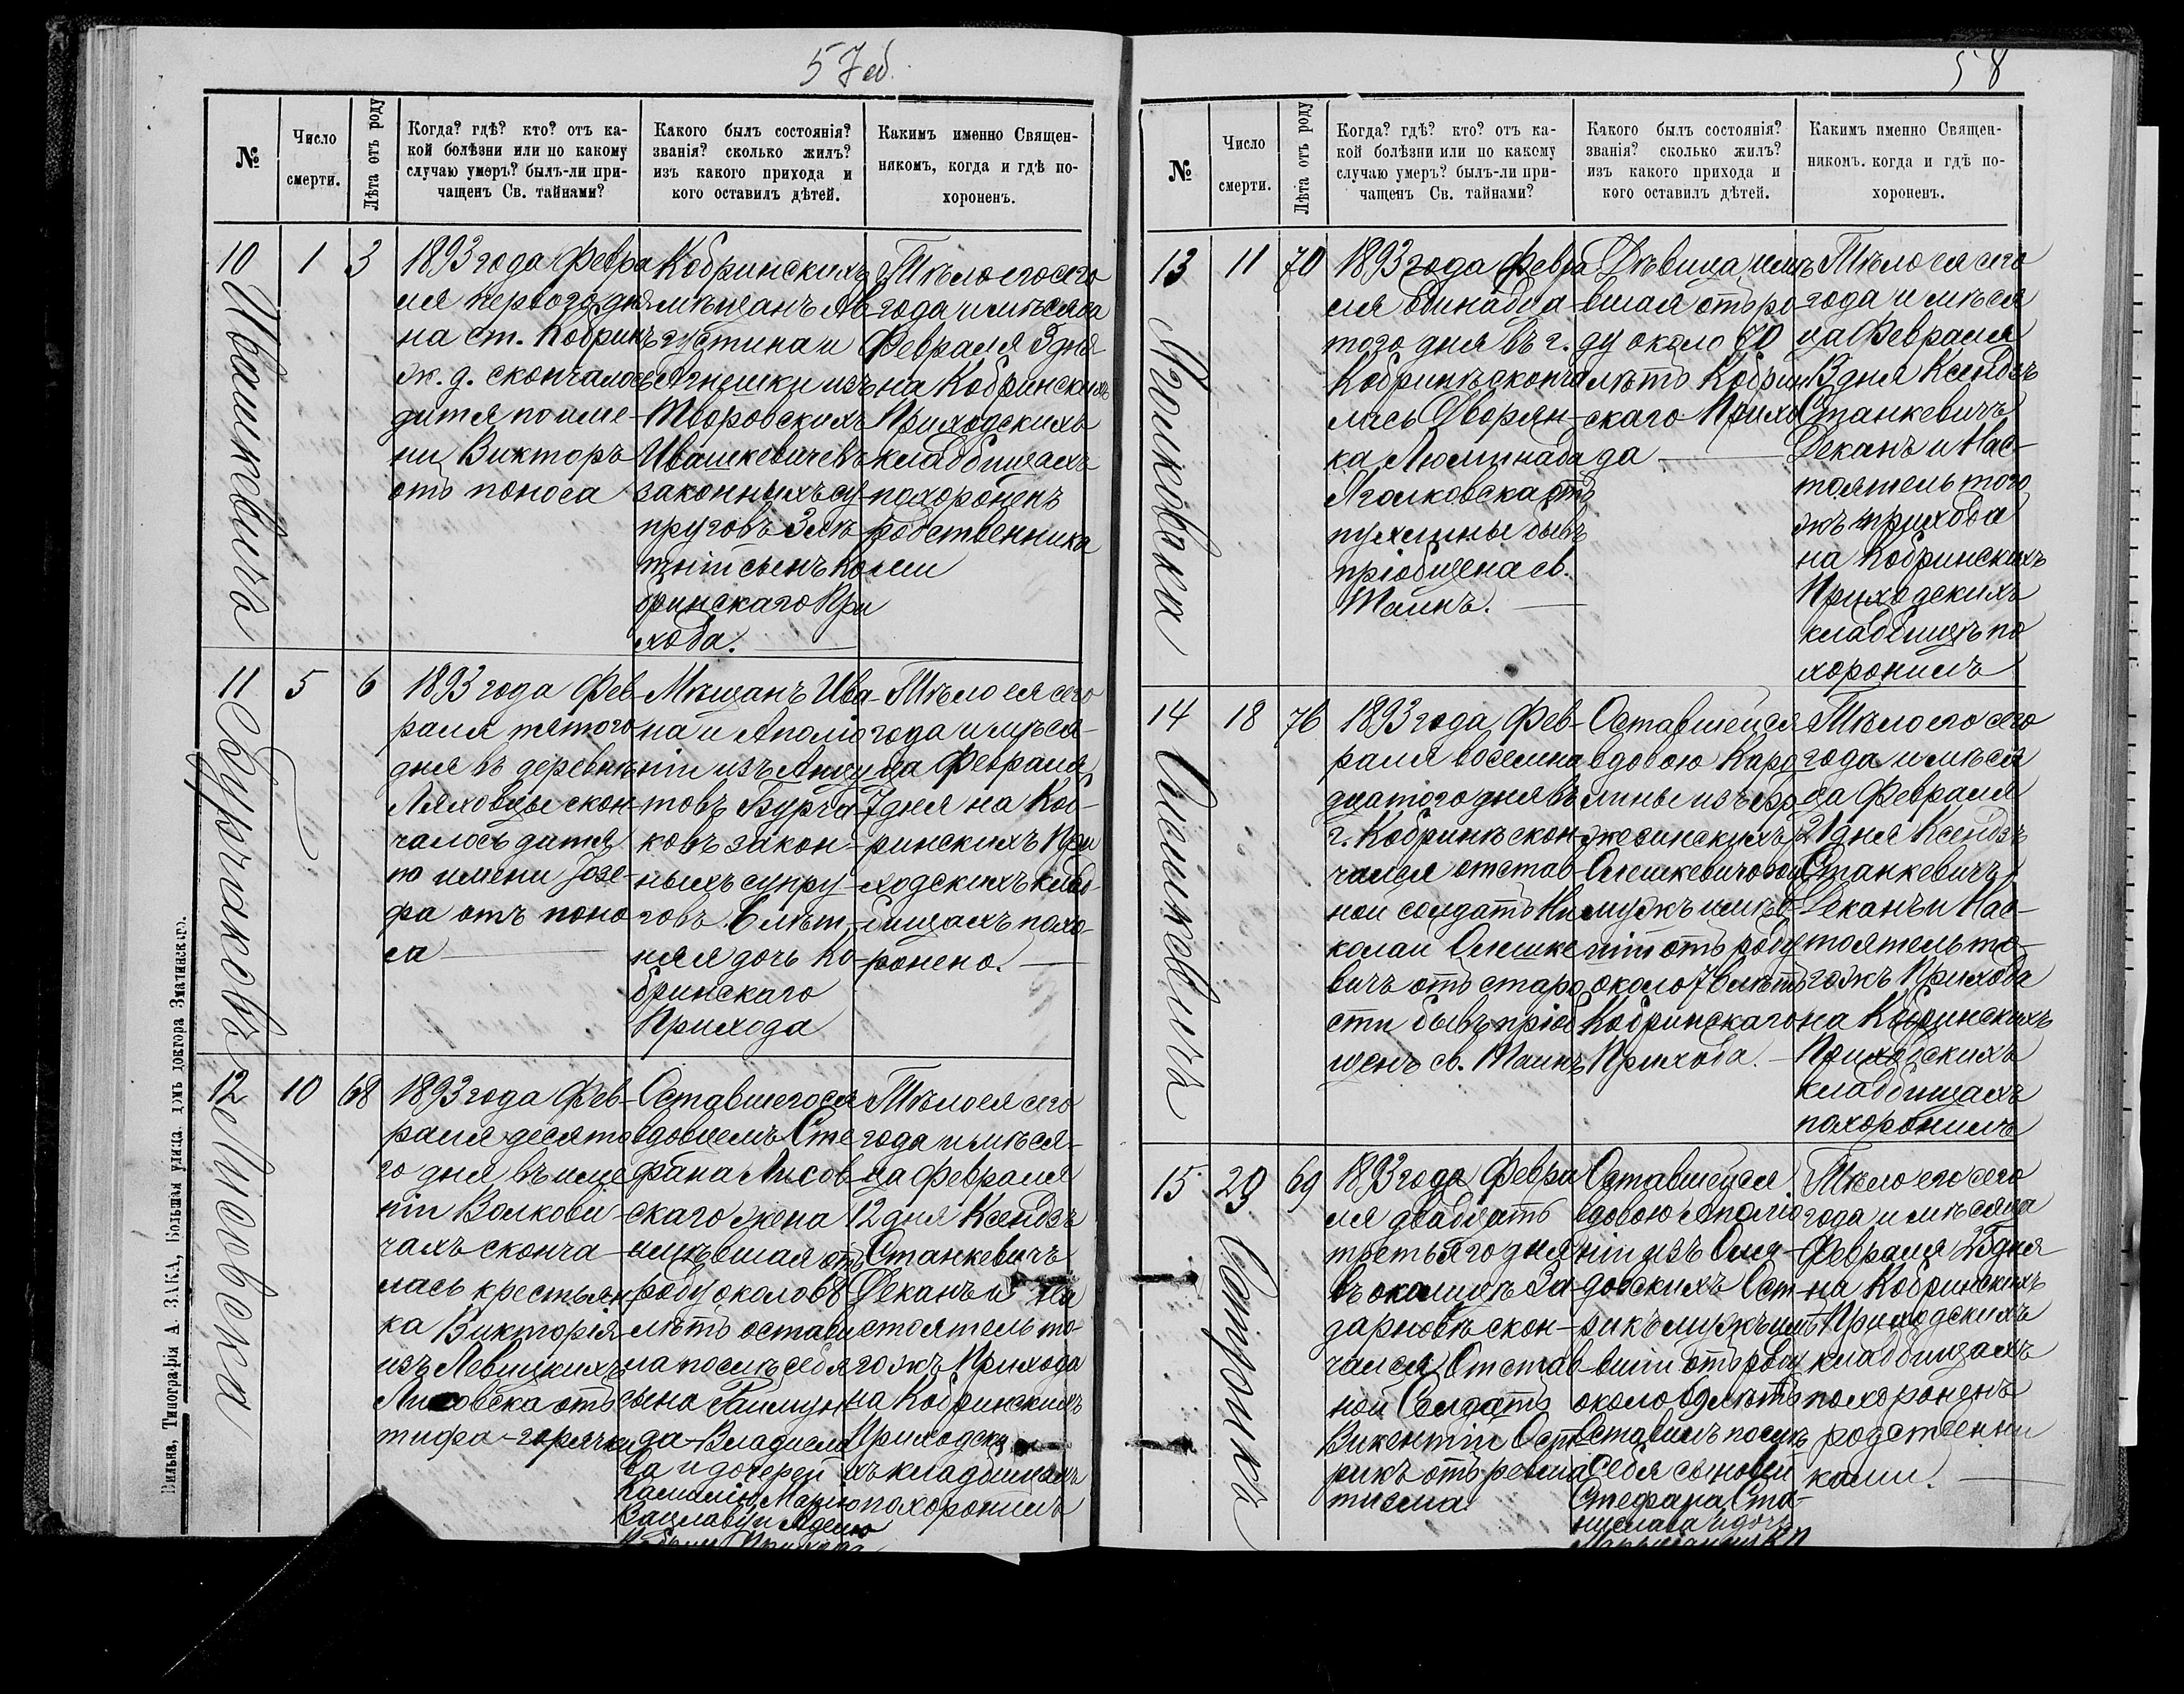 57об.
№
Число
смерти.
Лѣта отъ роду
Когда? гдѣ? кто? отъ ка-
кой болѣзни или по какому
случаю умеръ? былъ-ли при-
чащенъ Св. тайнами?
Какого былъ состоянія?
званія? сколько жилъ?
изъ какого прихода и
кого оставилъ дѣтей.
Какимъ именно Священ-
никомъ, когда и гдѣ по-
хороненъ.
10
Ивашкевичъ
1
3
1893 года Февра
ля перваго дня
на ст. Кобринъ
ж. д. скончалось
дитя по име-
ни Викторъ
отъ поноса
Кобринскихъ
мѣщанъ Ав-
густина и
Агнешки изъ
Творовскихъ
Ивашкевичевъ
законныхъ су-
пруговъ 3 лѣ
тній сынъ Ко
бринскаго При
хода.
Тѣло его сего
года и мѣсяца
Февраля 3 дня
на Кобринскихъ
Приходскихъ
кладбищахъ
похороненъ
родственника
ми
11
Бурчаковъ
5
6
1893 года Фев-
раля пятого
дня въ деревнѣ
Ляховцы скон-
чалось дитя
по имени Jозе-
фа отъ поно
са
Мѣщанъ Ива-
на и Аполіо
ніи изъ
Бурча-
ковъ закон-
ныхъ супру-
говъ 6 лѣт-
няя дочь Ко-
бринскаго
Прихода
Тѣло ея сего
года и мѣся-
ца Февраля
7 дня на Коб-
ринскихъ При
ходскихъ клад-
бищахъ похо-
ронено.
12
Лисовска
10
68
1893 года Фев-
раля десято
го дня въ име
ніи Волкови-
чахъ сконча-
лась крестьян
ка Викторія
изъ Левицкихъ
Лисовска отъ
тифа-горячки
Оставшегося
вдовцемъ Сте
фана Лисов-
скаго жена
имѣвшая отъ
роду около 68
лѣтъ остави
ла послѣ себя
сына Раймун
да-Владисла
ва и дочерей
Камилію, Марію
Вацлаву и Аделю
Тѣло ея сего
года и мѣся-
ца Февраля
12 дня Ксендзъ
Станкевичъ
Деканъ и На
стоятель то-
гожъ Прихода
на Кобринскихъ
Приходски
хъ кладбищахъ
похоронилъ
Вильна, Типографія А. ЗАКА, Большая улица. домъ доктора Змачинскаго.
58
№
Число
смерти.
Лѣта отъ роду
Когда? гдѣ? кто? отъ ка-
кой болѣзни или по какому
случаю умеръ? былъ-ли при-
чащенъ Св. тайнами?
Какого былъ состоянія?
званія? сколько жилъ?
изъ какого прихода и
кого оставилъ дѣтей.
Какимъ именно Священ-
никомъ. когда и гдѣ по-
хороненъ.
13
11
70
1893 года Февра
ля одинадца-
того дня въ г.
Кобринѣ сконча
лась Дворян-
ка Люцинада
отъ
пухлины бывъ
пріобщена св.
Таинъ.
Дѣвица имѣ
вшая отъ ро-
ду около 70
лѣтъ Кобрин
скаго Прихо
да
Тѣло ея сего
года и мѣся
ца Февраля
3 дня Ксендзъ
Станкевичъ
Деканъ и Нас-
тоятель того
жъ прихода
на Кобринскихъ
Приходскихъ
кладбищѣ по
хоронилъ
14
Олешкевичъ
18
76
1893 года Фев-
раля восемна
дцатого дня въ
г. Кобринѣ скон-
чался отстав-
ной солдатъ Ни
колай Олешке
вичъ отъ старо
сти бывъ пріоб
щенъ св. Таинъ
Оставшейся
вдовою Каро
лины изъ
Олешкевичовой
мужъ имѣв-
шій отъ роду
около 76 лѣтъ
Кобринскаго
Прихода.
Тѣло его сего
года и мѣся
ца Февраля
21 дня Ксендзъ
Станкевичъ
Деканъ и Нас-
тоятель то-
гожъ Прихода
на Кобринскихъ
Приходскихъ
кладбищахъ
похоронилъ
15
Остриkъ
23
69
1893 года Февра
ля двадцать
третьяго дня
въ околицѣ За-
зарновѣ скон-
чался Отстав-
ной Солдатъ
Викентій Ост-
рикъ отъ ревма
тизма
Оставшейся
вдовою Аполіо
ніи изъ
Ост-
рикъ мужъ имѣ
вшій отъ роду
около 69 лѣтъ
Оставилъ послѣ
себя сыновей
Стефана, Ста-
нислава и дочь
Тѣло его сего
года и мѣсяца
Февраля 25 дня
на Кобринскихъ
Приходскихъ
кладбищахъ
похороненъ
родственни
ками.